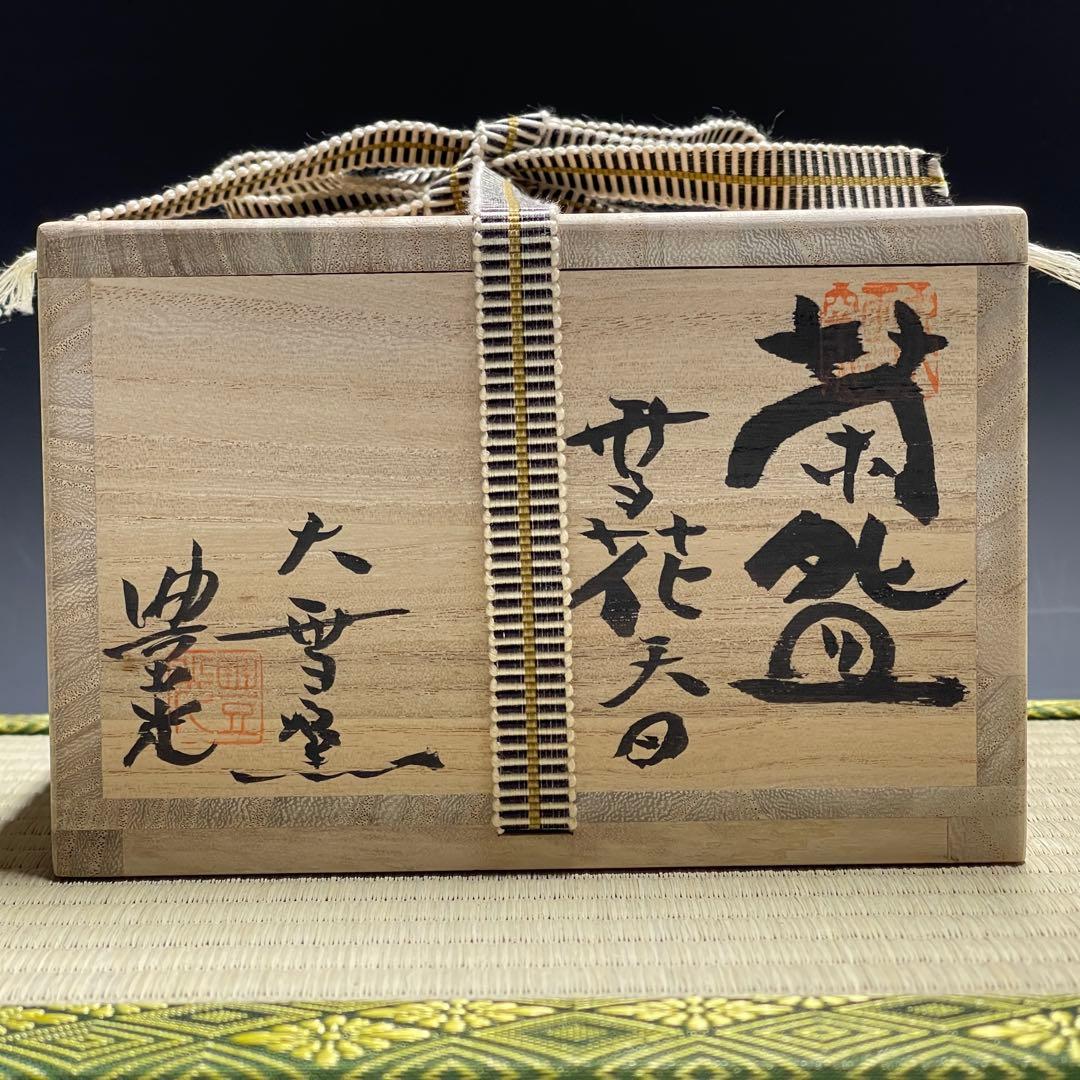 茶盌
雪花天目
大雪窯
豊光